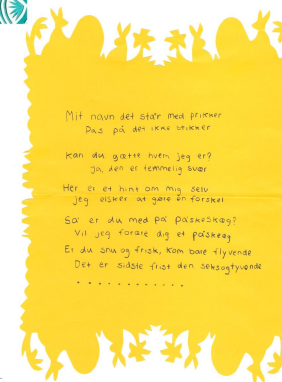 Mit navn det står med prikker
Pas på det ikke stikker
Kan du gætte hvem jeg er?
Ja, den er temmelig svær
Her er et hint om mig selv
jeg elsker at gøre en forskel
Så er du med på påskeskæg?
Vil jeg forære dig et påskeæg
Er du snu og frisk, kom bare flyvende
Det er sidste frist den seksogtyvende
. . . . . . . . . . . .